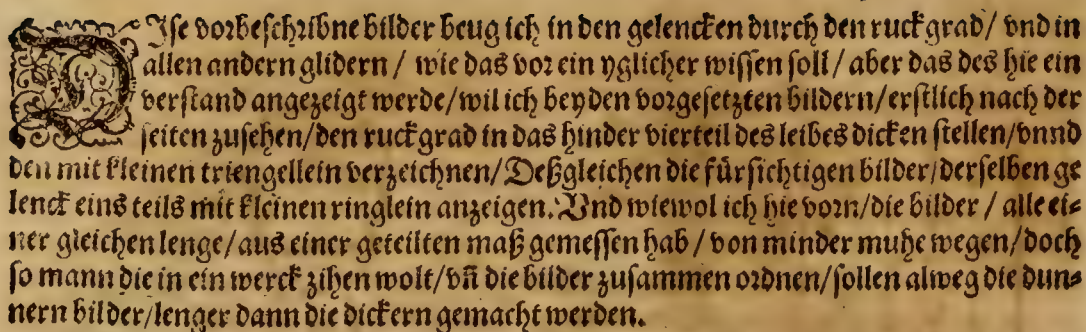 DIse vorbeschribne bilder beug ich in den gelencken durch den ruckgrad/ vnd in
allen andern glidern / wie das vor ein yglicher wissen soll / aber das des hie ein
verstand angezeigt werde/wil ich bey den vorgesetzten bildern/erstlich nach der
seiten zusehen/den ruckgrad in das hinder vierteil des leibes dicken stellen/vnnd
den mit kleinen triengellein verzeichnen/Deßgleichen die fürsichtigen bilder/derselben ge
lenck eins teils mit kleinen ringlein anzeigen. Vnd wiewol ich hie vorn/die bilder / alle ei⸗
ner gleichen lenge/aus einer geteilten maß gemessen hab / von minder muhe wegen/doch
so mann die in ein werck zihen wolt/vñ die bilder zusammen ordnen/sollen alweg die dun⸗
nern bilder/lenger dann die dickern gemacht werden.